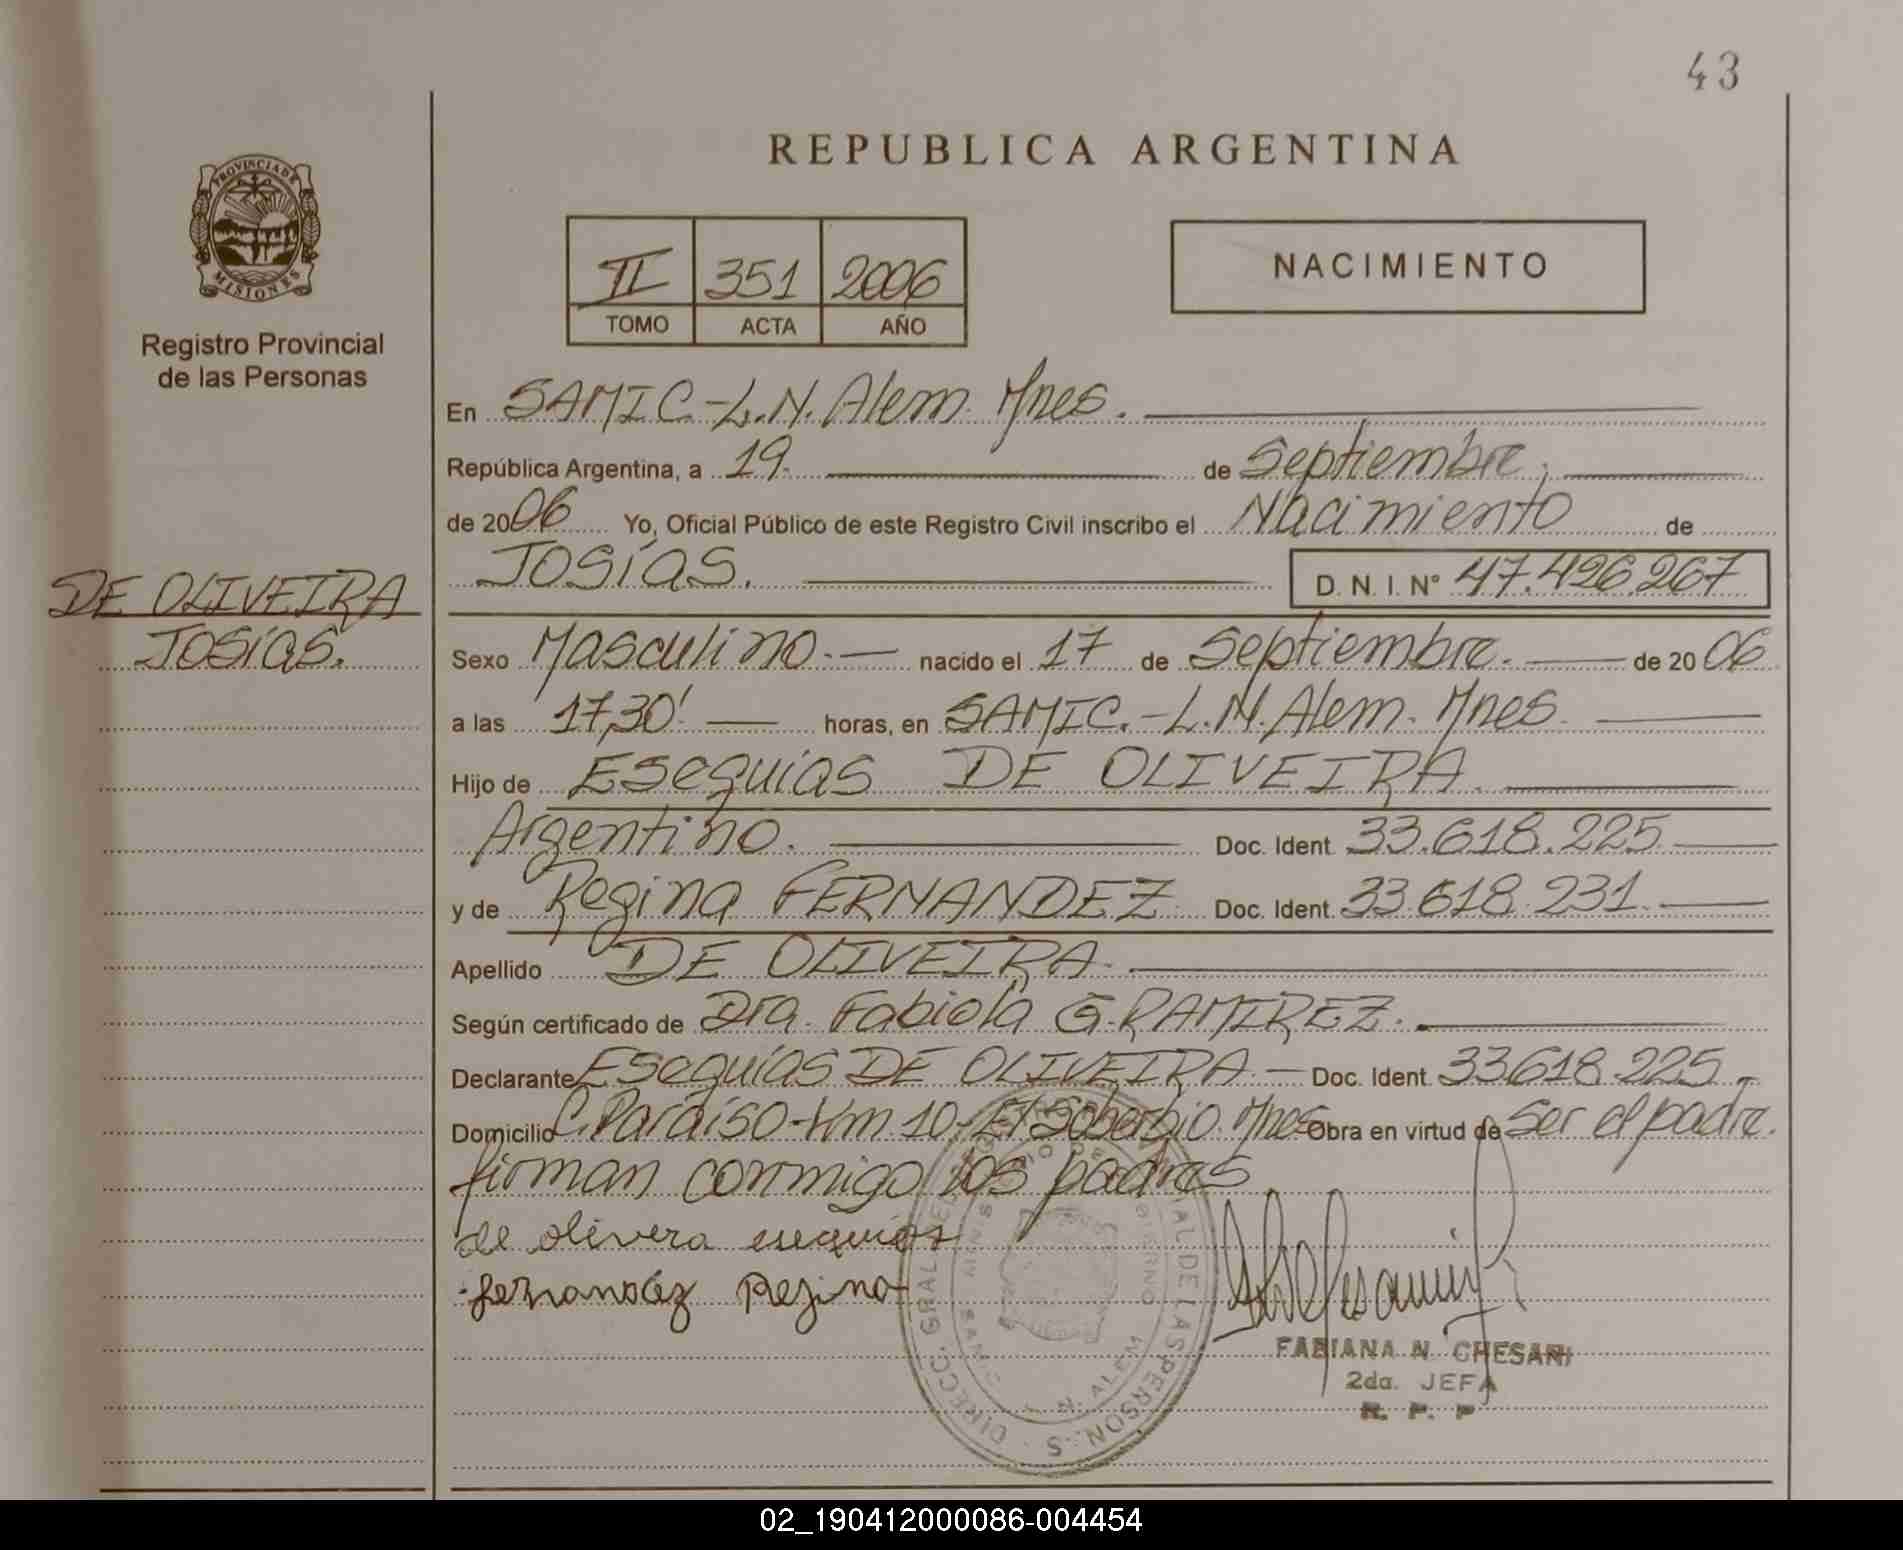 43
REPUBLICA ARGENTINA
PROVINCIA DE
MISIONES
Registro Provincial
de las Personas
II 351 2006
TOMO ACTA AÑO
NACIMIENTO
En SAMIC.-L.N. Alem. Mnes.
República Argentina, a 19. de Septiembre.
de 2006 Yo, Oficial Público de este Registro Civil inscribo el Nacimiento de
JOSÍAS. D. N. I. Nº 47.426.267
DE OLIVEIRA
JOSÍAS.
Sexo Masculino.- nacido el 17 de Septiembre. de 2006
a las 17,30' horas, en SAMIC.-L.N. Alem. Mnes.
Hijo de Esequías DE OLIVEIRA.
Argentino. Doc. Ident. 33.618.225
y de Regina FERNANDEZ Doc. Ident. 33.618.231.
Apellido DE OLIVEIRA.
Según certificado de Dra. Fabiola G. RAMIREZ.
Declarante Esequías DE OLIVEIRA - Doc. Ident. 33.618.225.-
Domicilio C. Paraíso-Km 10-El Soberbio. Mnes Obra en virtud de Ser el padre.
firman conmigo los padres
de olivera esequías
fernandez Regina
FABIANA N. CHESARI
2da. JEFA
R. P. P
02_190412000086-004454